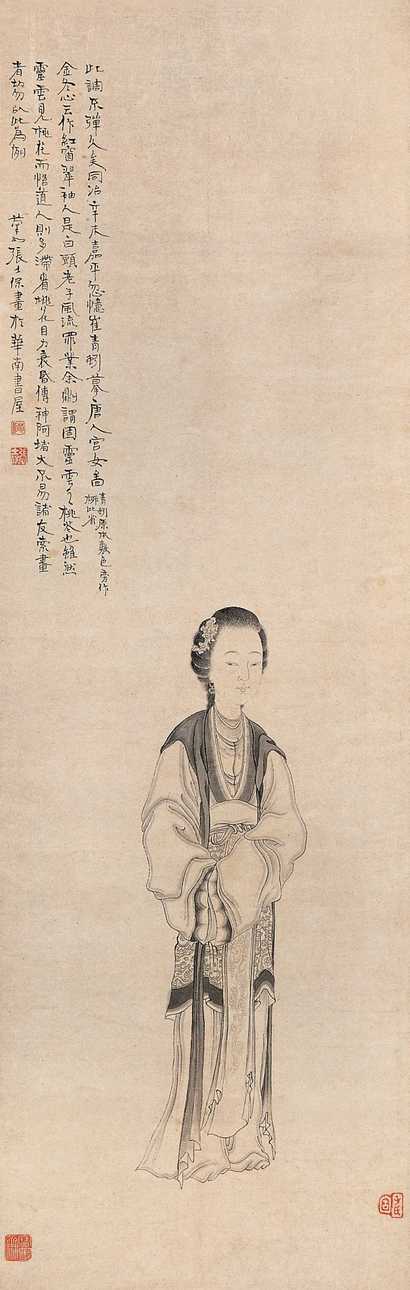 此調不彈久矣同治辛未嘉平忽憶崔青蚓摹唐人宮女圖
青蚓原本設色旁作
桃此省
金冬心云作紅窗翠袖人是白頭老子風流罪業余則謂固靈雲之桃花也雖然
靈雲見桃花而悟道人則多滯省桃花目力衰昏傳神阿堵大不易諸友索畫
者勿以此為例
張士保畫於華南書屋